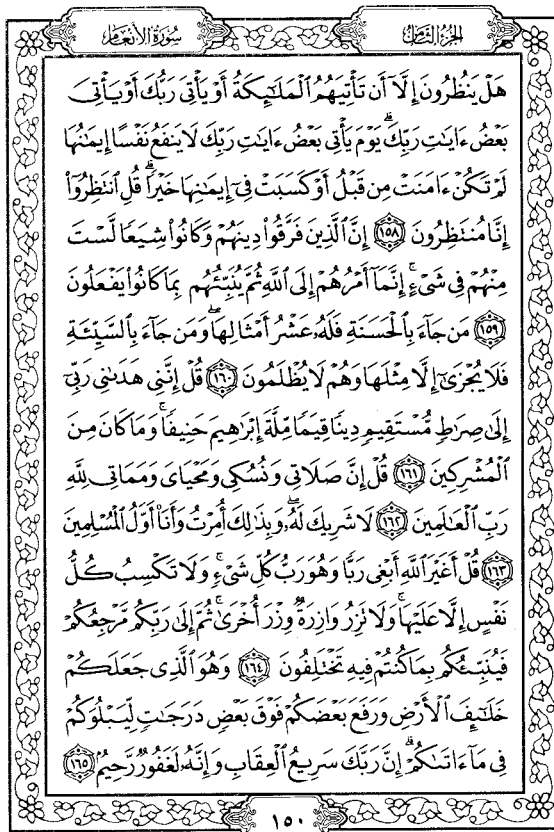 سُورَةُ الأَنْعَامِ
الجُزءُ الثَّامِنُ
هَلْ يَنظُرُونَ إِلَّآ أَن تَأْتِيَهُمُ ٱلْمَلَٰٓئِكَةُ أَوْ يَأْتِىَ رَبُّكَ أَوْ يَأْتِىَ
بَعْضُ ءَايَٰتِ رَبِّكَ ۗ يَوْمَ يَأْتِى بَعْضُ ءَايَٰتِ رَبِّكَ لَا يَنفَعُ نَفْسًا إِيمَٰنُهَا
لَمْ تَكُنْ ءَامَنَتْ مِن قَبْلُ أَوْ كَسَبَتْ فِىٓ إِيمَٰنِهَا خَيْرًا ۗ قُلِ ٱنتَظِرُوٓا۟
إِنَّا مُنتَظِرُونَ ١٥٨ إِنَّ ٱلَّذِينَ فَرَّقُوا۟ دِينَهُمْ وَكَانُوا۟ شِيَعًا لَّسْتَ
مِنْهُمْ فِى شَىْءٍ ۚ إِنَّمَآ أَمْرُهُمْ إِلَى ٱللَّهِ ثُمَّ يُنَبِّئُهُم بِمَا كَانُوا۟ يَفْعَلُونَ
١٥٩ مَن جَآءَ بِٱلْحَسَنَةِ فَلَهُۥ عَشْرُ أَمْثَالِهَا ۖ وَمَن جَآءَ بِٱلسَّيِّئَةِ
فَلَا يُجْزَىٰٓ إِلَّا مِثْلَهَا وَهُمْ لَا يُظْلَمُونَ ١٦٠ قُلْ إِنَّنِى هَدَىٰنِى رَبِّىٓ
إِلَىٰ صِرَٰطٍ مُّسْتَقِيمٍ دِينًا قِيَمًا مِّلَّةَ إِبْرَٰهِيمَ حَنِيفًا ۚ وَمَا كَانَ مِنَ
ٱلْمُشْرِكِينَ ١٦١ قُلْ إِنَّ صَلَاتِى وَنُسُكِى وَمَحْيَاىَ وَمَمَاتِى لِلَّهِ
رَبِّ ٱلْعَٰلَمِينَ ١٦٢ لَا شَرِيكَ لَهُۥ ۖ وَبِذَٰلِكَ أُمِرْتُ وَأَنَا۠ أَوَّلُ ٱلْمُسْلِمِينَ
١٦٣ قُلْ أَغَيْرَ ٱللَّهِ أَبْغِى رَبًّا وَهُوَ رَبُّ كُلِّ شَىْءٍ ۚ وَلَا تَكْسِبُ كُلُّ
نَفْسٍ إِلَّا عَلَيْهَا ۚ وَلَا تَزِرُ وَازِرَةٌ وِزْرَ أُخْرَىٰ ۚ ثُمَّ إِلَىٰ رَبِّكُم مَّرْجِعُكُمْ
فَيُنَبِّئُكُم بِمَا كُنتُمْ فِيهِ تَخْتَلِفُونَ ١٦٤ وَهُوَ ٱلَّذِى جَعَلَكُمْ
خَلَٰٓئِفَ ٱلْأَرْضِ وَرَفَعَ بَعْضَكُمْ فَوْقَ بَعْضٍ دَرَجَٰتٍ لِّيَبْلُوَكُمْ
فِى مَآ ءَاتَىٰكُمْ ۗ إِنَّ رَبَّكَ سَرِيعُ ٱلْعِقَابِ وَإِنَّهُۥ لَغَفُورٌ رَّحِيمٌۢ ١٦٥
١٥٠